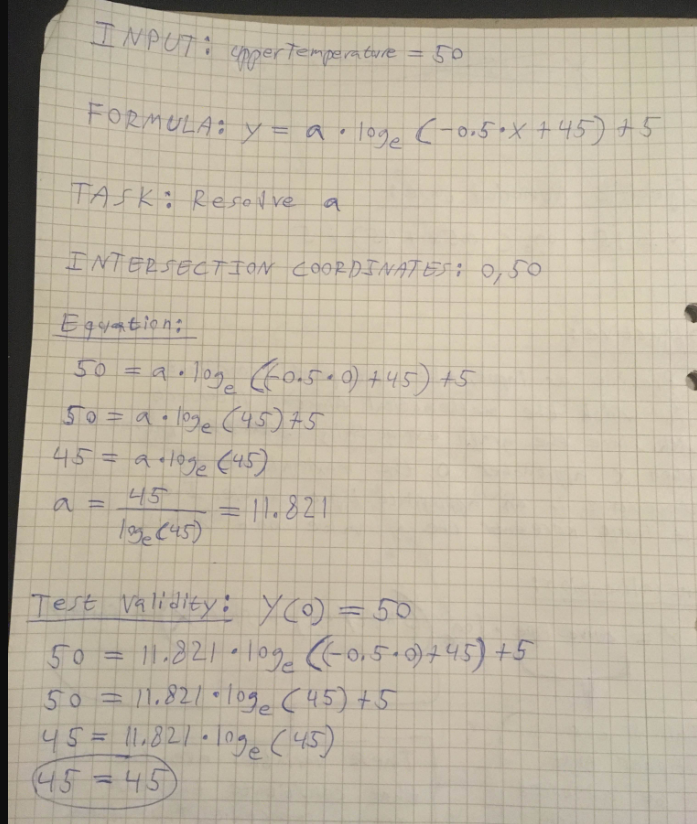 INPUT: upperTemperature = 50
FORMULA: y = a · logₑ (-0.5·x + 45) + 5
TASK: Resolve a
INTERSECTION COORDINATES: 0,50
Equation:
50 = a · logₑ ((-0.5·0) + 45) + 5
50 = a · logₑ (45) + 5
45 = a · logₑ (45)
a = 45 / logₑ(45) = 11.821
Test Validity: Y(0) = 50
50 = 11.821 · logₑ ((-0.5·0) + 45) + 5
50 = 11.821 · logₑ (45) + 5
45 = 11.821 · logₑ (45)
45 = 45